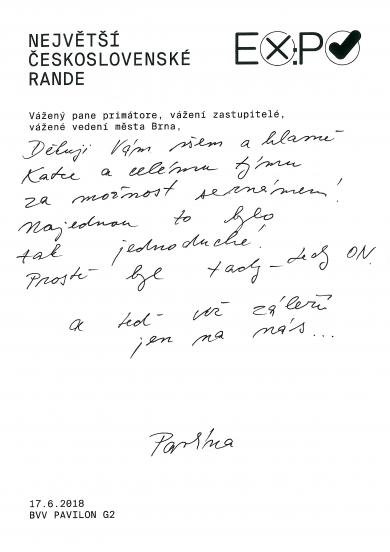 NEJVĚTŠÍ
ČESKOSLOVENSKÉ
RANDE
EX:PO
Vážený pane primátore, vážení zastupitelé,
vážené vedení města Brna,
Děkuji Vám všem a hlavně
Katce a celému týmu
za možnost seznámení!
Najednou to bylo
tak jednoduché!
Prostě byl tady - tedy ON.
a teď už záleží
jen na nás...
Pavlína
17.6.2018
BVV PAVILON G2